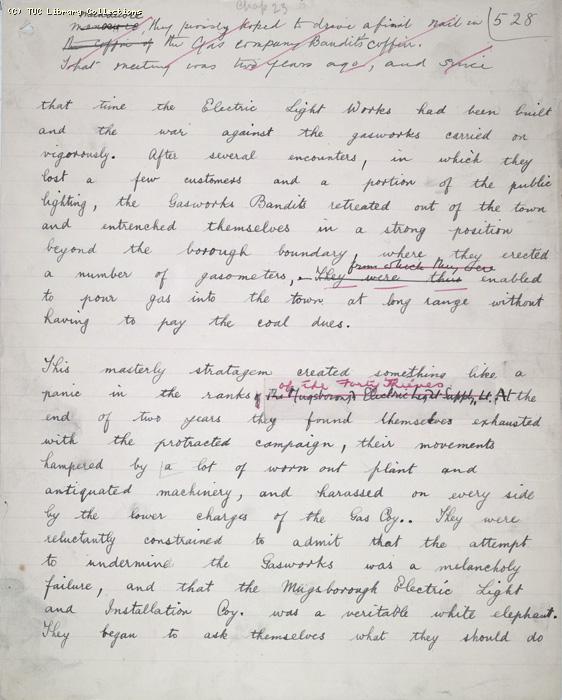 (C) TUC Library Collections
Chap 23
528
manoeuvre
manoeuvre, they piously hoped to drive a final nail in
the coffin of the Gas company Bandits coffin.
That meeting was two years ago, and since
that time the Electric Light Works had been built
and the war against the gasworks carried on
vigorously. After several encounters, in which they
lost a few customers and a portion of the public
lighting, the Gasworks Bandits retreated out of the town
and entrenched themselves in a strong position
beyond the borough boundary, where they erected
a number of gasometers, They were thus enabled
from which they were
to pour gas into the town at long range without
having to pay the coal dues.
This masterly stratagem created something like a
of the Forty Thieves
panic in the ranks of the Mugsborough Electric Light Supply Lt. At the
end of two years they found themselves exhausted
with the protracted campaign, their movements
hampered by a lot of worn out plant and
antiquated machinery, and harassed on every side
by the lower charges of the Gas Coy.. They were
reluctantly constrained to admit that the attempt
to undermine the Gasworks was a melancholy
failure, and that the Mugsborough Electric Light
and Installation Coy. was a veritable white elephant.
They began to ask themselves what they should do